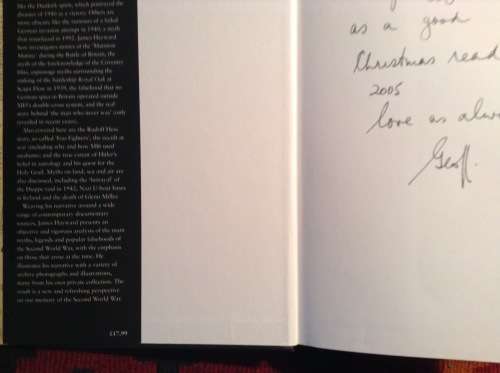 like the Dunkirk spirit, which portrayed the
disaster of 1940 as a victory. Others are
more obscure, like the rumours of a failed
German invasion attempt in 1940, a myth
that resurfaced in 1992. James Hayward
here investigates stories of the 'Massacre
during the Battle of Britain, the
myth of the foreknowledge of the Coventry
blitz, espionage myths surrounding the
sinking of the battleship Royal Oak at
Scapa Flow in 1939, the falsehood that no
German spies in Britain operated outside
MI5's double-cross system, and the real
story behind 'the man who never was' (only
revealed in recent years).
Also covered here are the Rudolf Hess
story, so-called 'Foo Fighters', the occult at
war (including why and how MI6 used
mediums) and the true extent of Hitler's
belief in astrology and his quest for the
Holy Grail. Myths on land, sea and air are
also discussed, including the 'betrayal' of
the Dieppe raid in 1942, Nazi U-boat bases
in Ireland and the death of Glenn Miller.
Weaving his narrative around a wide
range of contemporary documentary
sources, James Hayward presents an
objective and rigorous analysis of the main
myths, legends and popular falsehoods of
the Second World War, with the emphasis
on those that arose at the time. He
illustrates his narrative with a variety of
archive photographs and illustrations,
many from his own private collection. The
result is a new and refreshing perspective
on our memory of the Second World War.
£17.99
as a good
Christmas read
2005
love as alwa
Geoff.